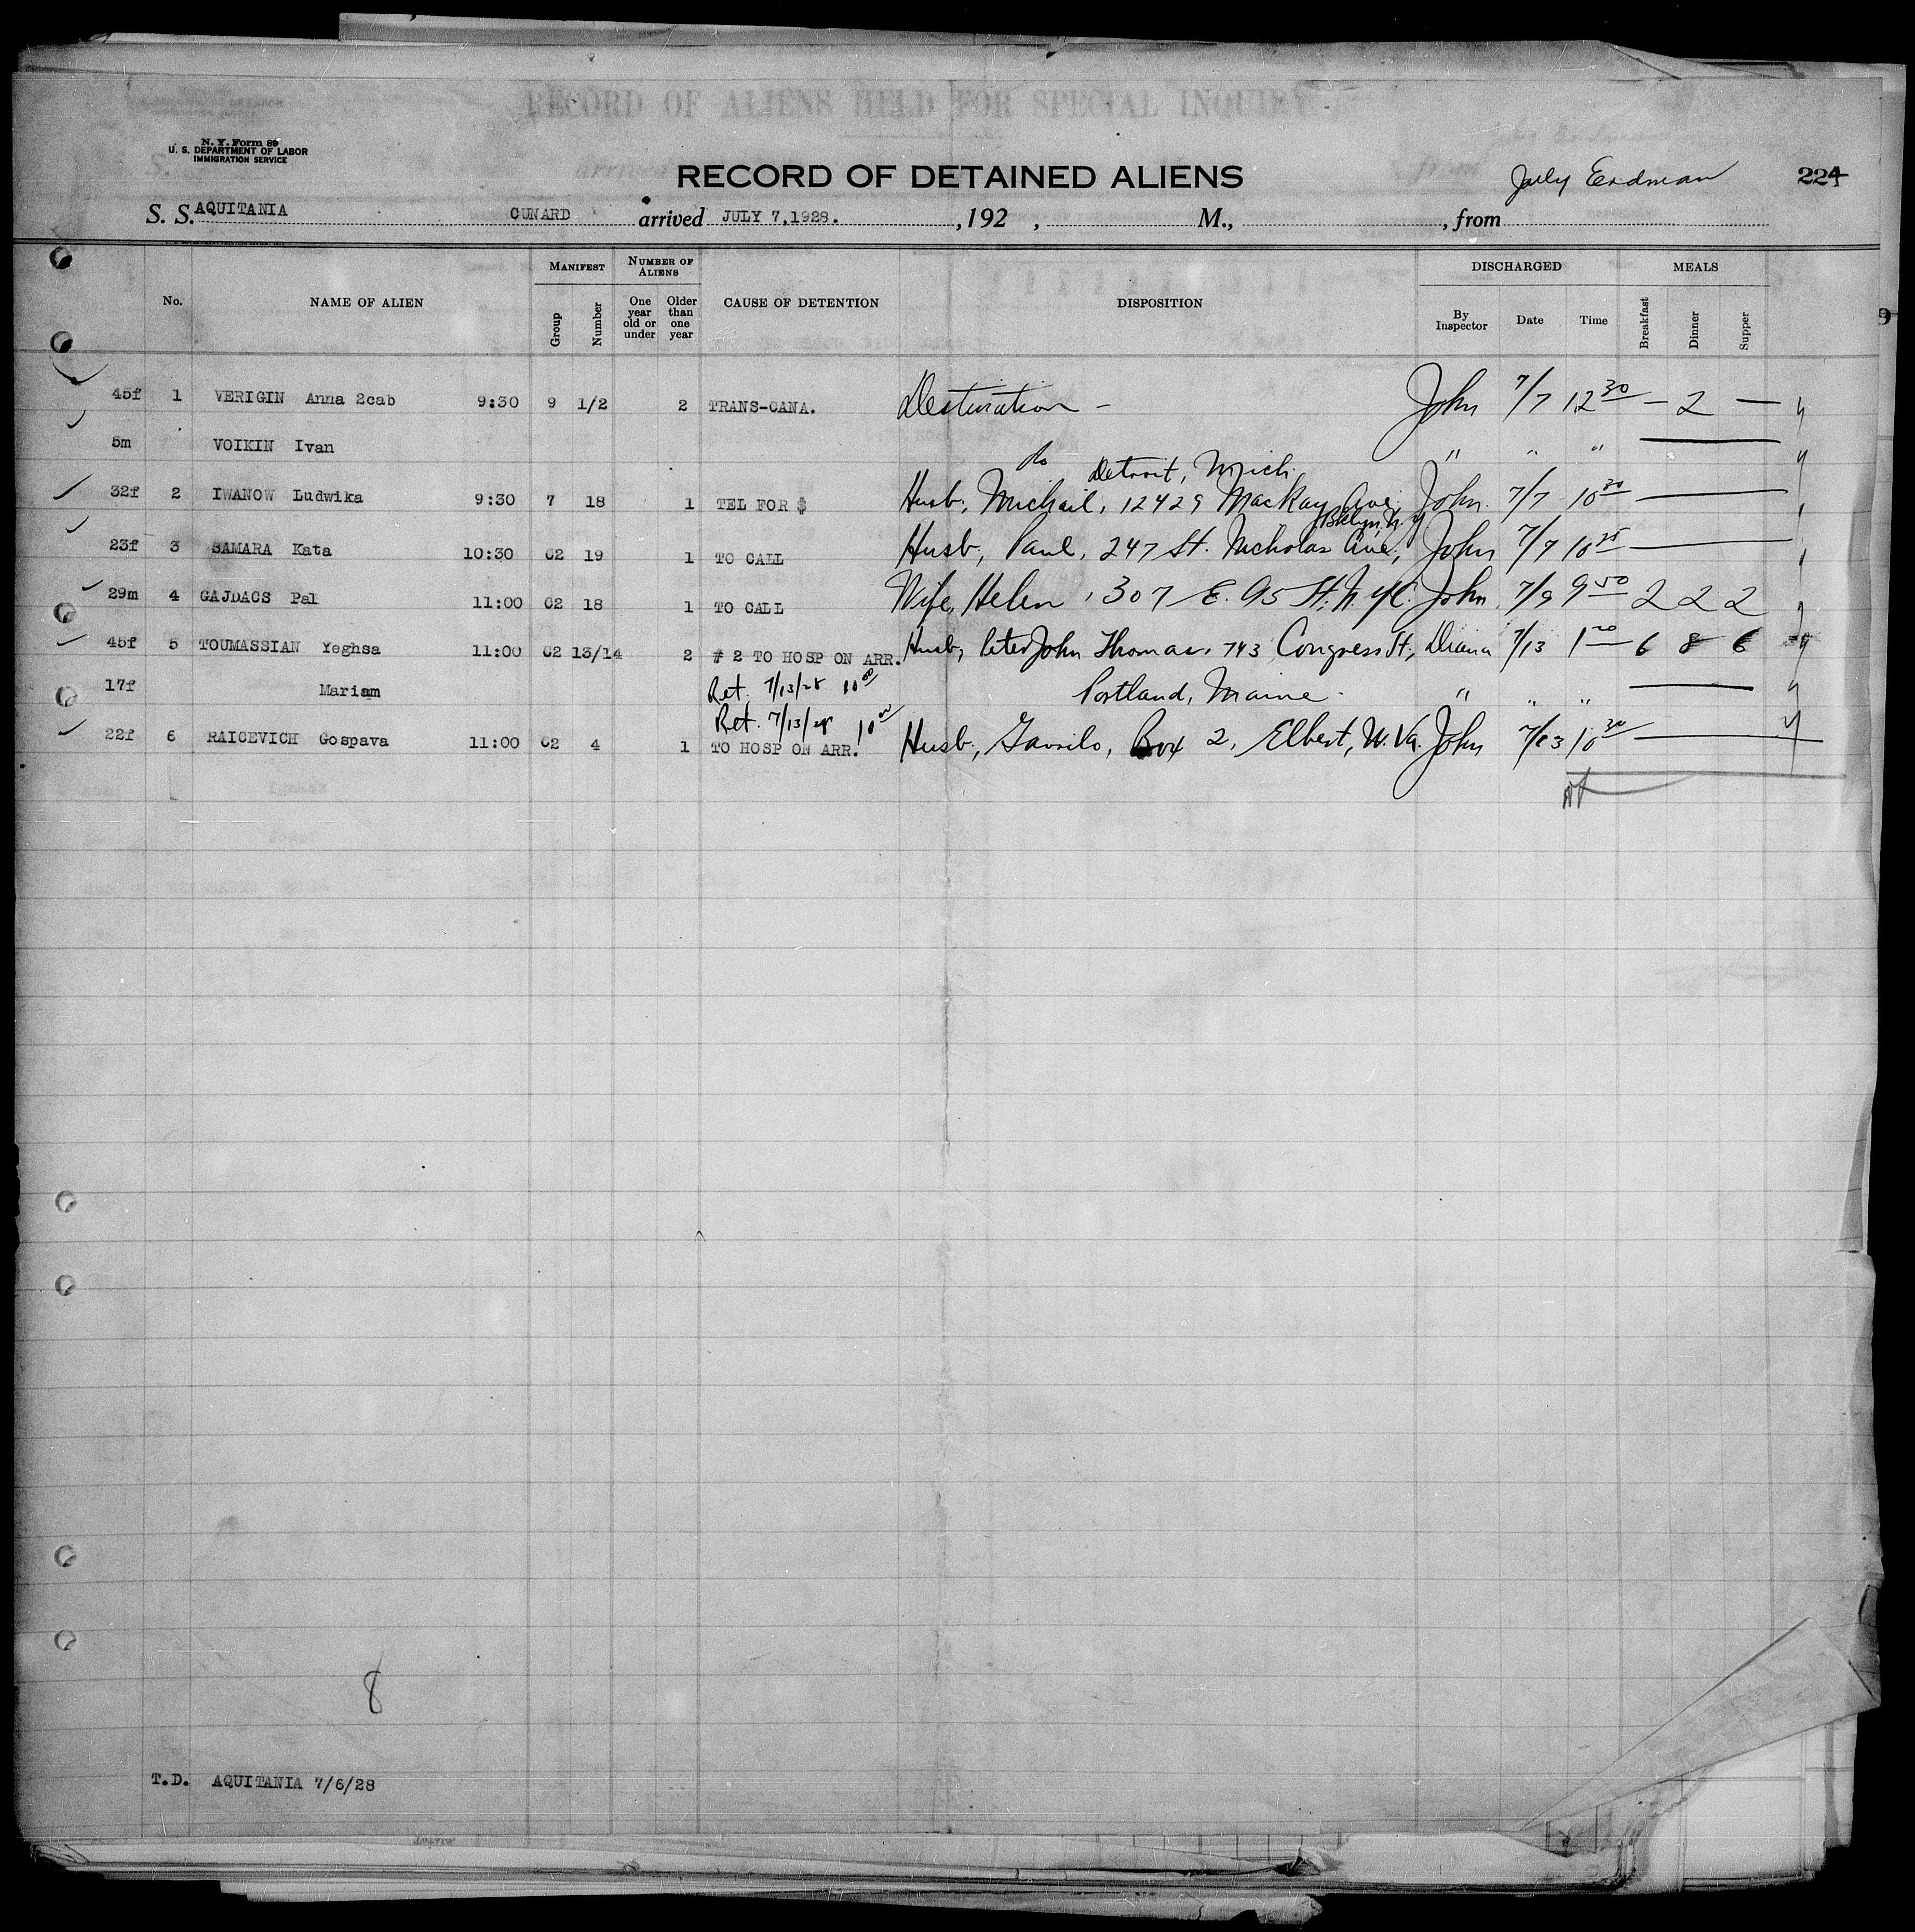 RECORD OF ALIENS HELD FOR SPECIAL INQUIRY
N. Y. Form 86
U. S. DEPARTMENT OF LABOR
IMMIGRATION SERVICE
RECORD OF DETAINED ALIENS
Erdman
224
S. S. AQUITANIA CUNARD arrived JULY 7,1928. ,192 , M., , from
No. NAME OF ALIEN MANIFEST Group Number NUMBER OF ALIENS One year old or under Older than one year CAUSE OF DETENTION DISPOSITION DISCHARGED By Inspector Date Time MEALS Breakfast Dinner Supper
45f 1 VERIGIN Anna 2cab 9:30 9 1/2 2 TRANS-CANA. Destination - John 7/7 12 30 — 2 —
5m VOIKIN Ivan do " " "
Detroit, Mich.
32f 2 IWANOW Ludwika 9:30 7 18 1 TEL FOR $ Husb, Michail, 12429 MacKay Ave, John 7/7 10 30
Bklyn N Y
23f 3 SAMARA Kata 10:30 C2 19 1 TO CALL Husb, Paul, 247 St. Nicholas Ave, John 7/7 10 25
29m 4 GAJDACS Pal 11:00 C2 18 1 TO CALL Wife, Helen, 307 E. 95 St. N.Y.C. John 7/9 9 50 2 2 2
45f 5 TOUMASSIAN Yeghsa 11:00 C2 13/14 2 # 2 TO HOSP ON ARR. Husb, John Thomas, 743 Congress St, Diana 7/13 1 20 6 8 6
17f Mariam Ret. 7/13/28 10 00 Portland, Maine " " "
Ret. 7/13/28 10 00
22f 6 RAICEVICH Gospava 11:00 C2 4 1 TO HOSP ON ARR. Husb, Gavrilo, Box 2, Elbert, W. Va. John 7/13 10 30
8
T.D. AQUITANIA 7/6/28